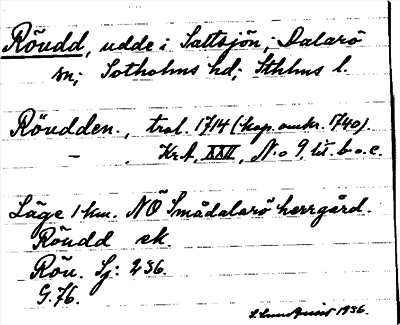 Röudd, udde i Saltsjön, Dalarö
sn; Sotholms hd; Sthlms l.
Röudden., trol. 1714 (: kap. omkr. 1740).
– Krt. XXII, N:o 9, lit. b o. c.
Läge 1 km. NÖ Smådalarö herrgård.
Röudd ek.
Röu. Sj: 236.
G. 76.
S. Lundquist 1936.